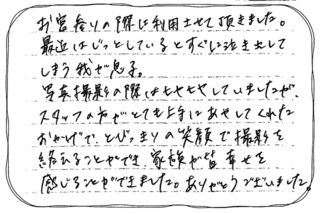 お宮参りの際に利用させて頂きました。
最近はじっとしているとすぐに泣き出して
しまう我が息子。
写真撮影の際はヒヤヒヤしていましたが、
スタッフの方がとても上手にあやしてくれた
おかげで、とびっきりの笑顔で撮影を
終えることができ、家族が皆幸せを
感じることができました。ありがとうございました